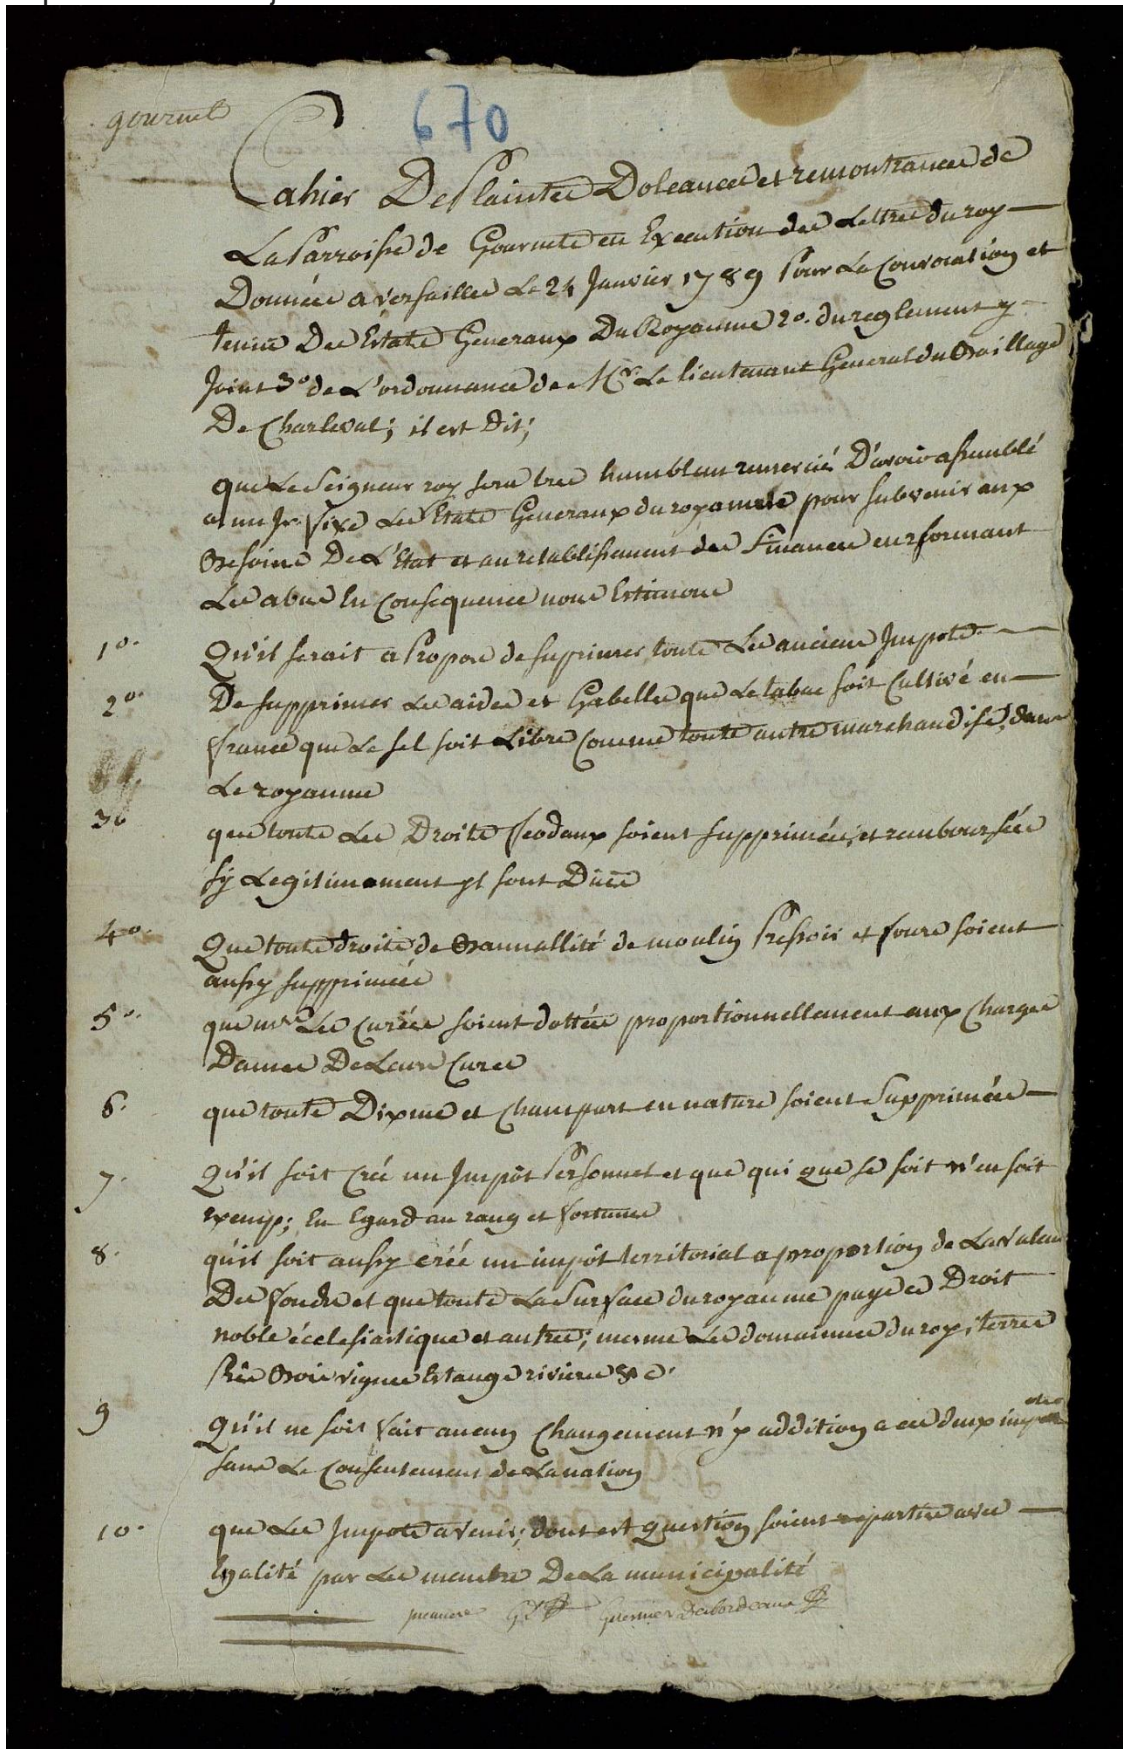 gournets
670
Cahier De Plaintes Doleances et remontrances de
La Parroisse de Gournets en Execution des Lettres du roy
Données a versailles Le 24 Janvier 1789 Pour La Convocation et
tenüe Des Estats Generaux Du Royaume 2º. du reglement y
Joint 3º de L'ordonnance de Mr. Le lieutenant General du Baillage
De Charleval; il est Dit;
que Le Seigneur roy sera tres humblem remercié D'avoir assemblé
a un Jr. fixe Les Etats Generaux du royaume pour subvenir aux
Besoins De L'Etat et au retablissement des Finances en reformant
Les abus En Consequence nous Estimons
1º. Qu'il serait a Propos de suprimer touts Les anciens Impots.
2º. De supprimer Les aides et Gabelles que Le tabac soit Cultivé en
france que Le sel soit Libre Comme toute autre marchandise, dans
Le royaume
3º que touts Les Droits feodaux soient supprimés, et remboursées
sy Legitimement yl sont Dües
4º. Que touts droits de Bannallité de moulin Pressoir et fours soient
aussy supprimées
5º. que mrs. Les Curées soient dottées proportionnellement aux Charges
Dames De Leurs Cures
6. que toute Dixme et Champart en nature soient Supprimées
7. Qu'il soit Créé un Impôt Personnel et que qui que se soit n'en soit
exemp; En Egard au rang et fortunes
8. qu'il soit aussy créé un impôt territorial a proportion de La valeur
Des fonds et que toute La Surface du royaume paye ce Droit
noble écclesiastique et autres; mesme Les domaines du roy, terres
Prés Bois vignes Estangs rivieres &c.
9 Qu'il ne soit fait aucun Changement n'y addition a ces deux impots
sans Le Consentement de La nation
10. que Les Impots a venir; dont est question soient repartis avec
Egalité par Les membres De La municipalité
premiere